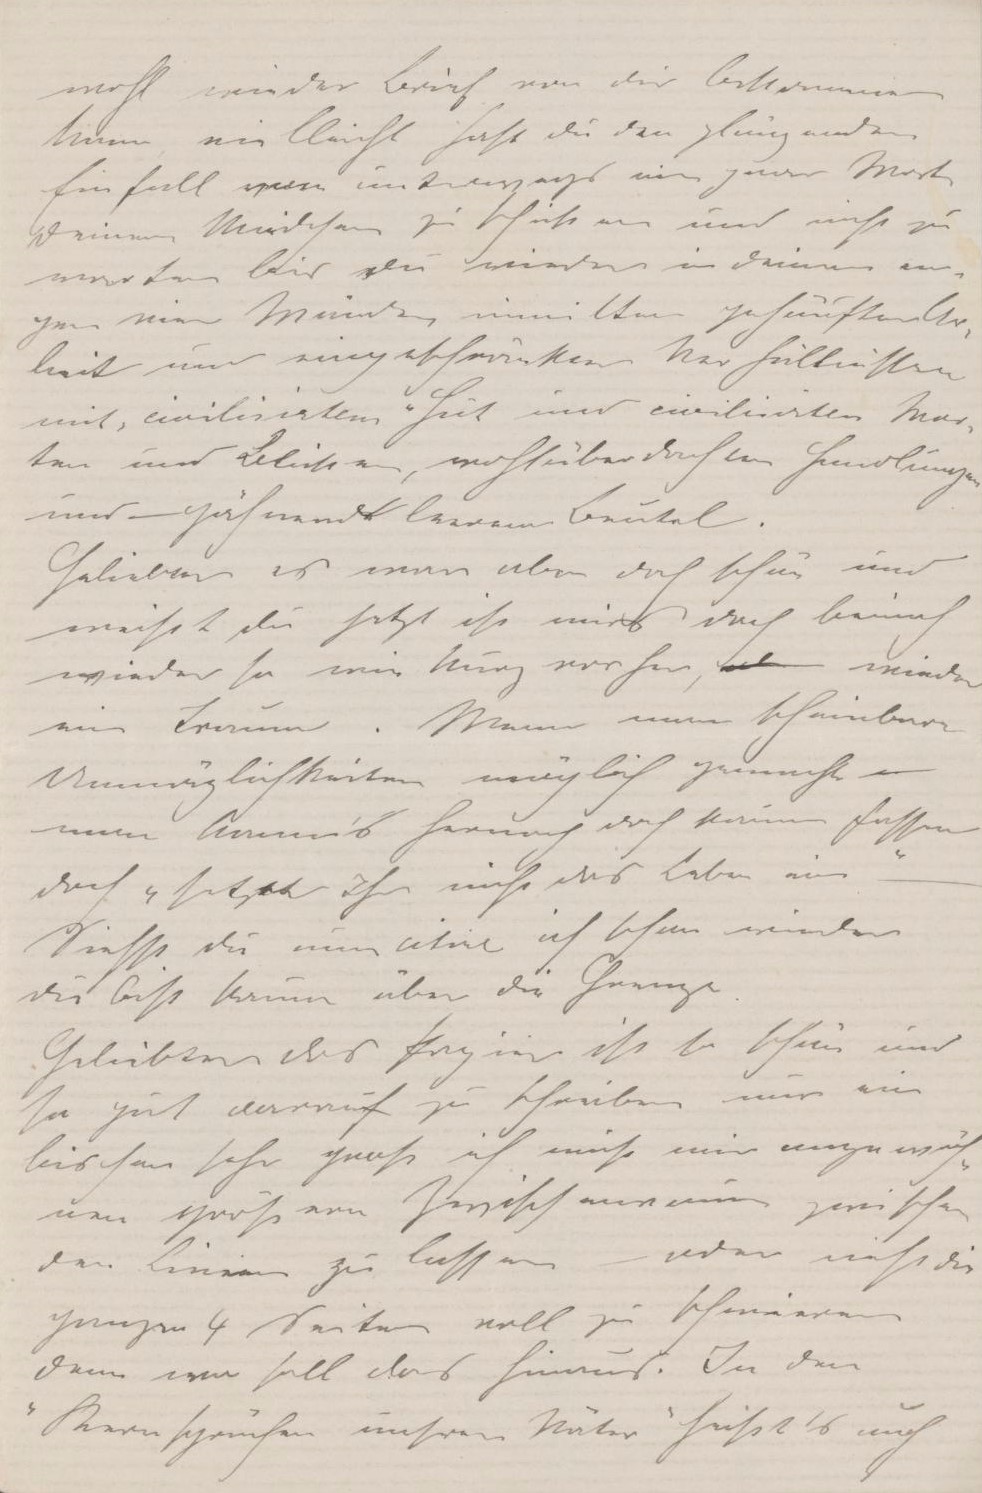 wohl wieder Brief von dir bekommen
kann, vielleicht hast du den glänzenden
Einfall unterwegs ein paar Worte
deinem Mädchen zu schicken und nicht zu
warten bis du wieder in deinen en-
gen vier Wänden, inmitten gehäufter Ar-
beit und eingeschränkten Verhältnissen
mit „civilisirtem" Hut und civilisirten Wor-
ten und Blicken, wohlüberdachten Handlungen
und – gähnend leerem Beutel.
Geliebter es war aber doch schön und
weisst du jetzt ist mirs doch beinah
wieder so wie kurz vorher, wieder
ein Traum. Wenn man scheinbare
Unmöglichkeiten möglich gemacht –
man kann's hernach doch kaum fassen
doch „setzet Ihr nicht das Leben ein" –
Siehst du nun citire ich schon wieder
du bist kaum über die Grenze.
Geliebter das Papier ist so schön und
so gut darauf zu schreiben nur ein
bischen sehr gross ich muss mir angewöh-
nen grössern Zwischenraum zwischen
den Linien zu lassen – oder nicht die
ganzen 4 Seiten voll zu schmieren
denn wo soll das hinaus. In den
"Kernsprüchen unsrer Väter" heisst's auch